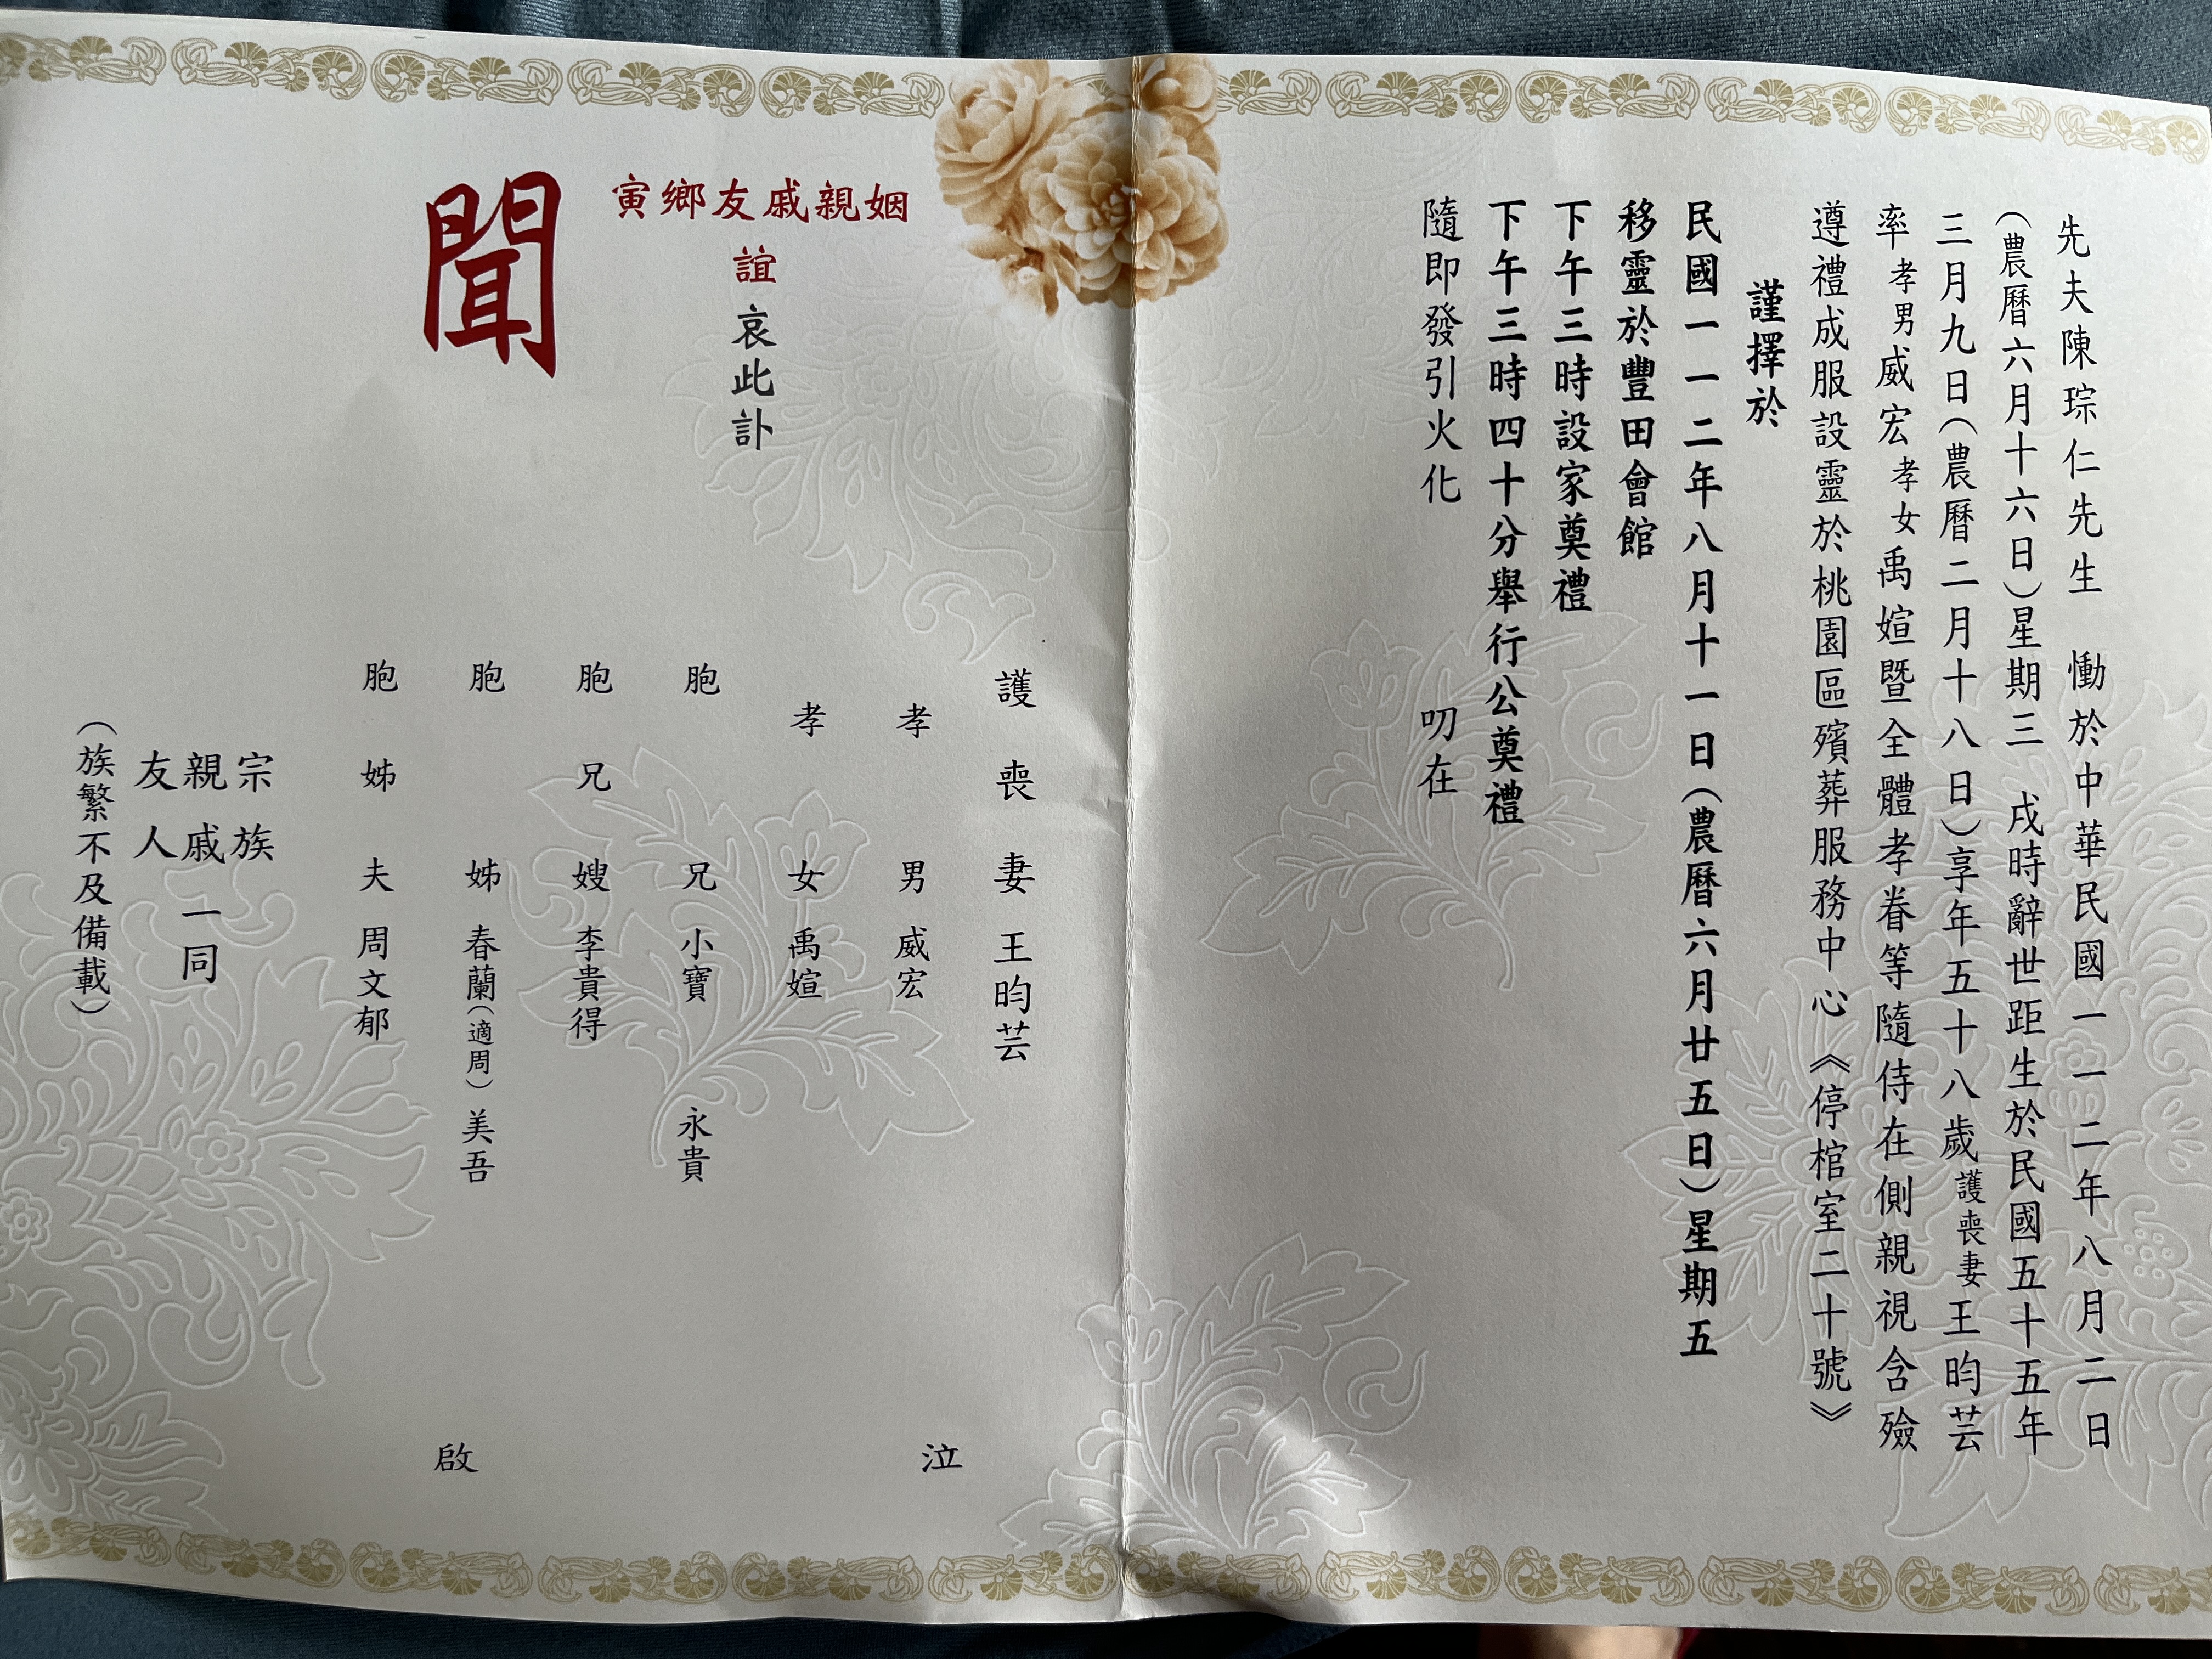 先夫陳琮仁先生　慟於中華民國一一二年八月二日
（農曆六月十六日）星期三　戌時辭世距生於民國五十五年
三月九日（農曆二月十八日）享年五十八歲護喪妻王昀芸
率孝男威宏孝女禹媗暨全體孝眷等隨侍在側親視含殮
遵禮成服設靈於桃園區殯葬服務中心《停棺室二十號》
謹擇於
民國一一二年八月十一日（農曆六月廿五日）星期五
移靈於豐田會館
下午三時設家奠禮
下午三時四十分舉行公奠禮
隨即發引火化　叨在
姻親戚友鄉寅
誼哀此訃
聞
護喪妻　王昀芸
孝男　威宏
孝女　禹媗
泣
胞兄　小寶　永貴
胞兄嫂　李貴得
胞姊　春蘭（適周）美吾
胞姊夫　周文郁
啟
宗族
親戚一同
友人
（族繁不及備載）